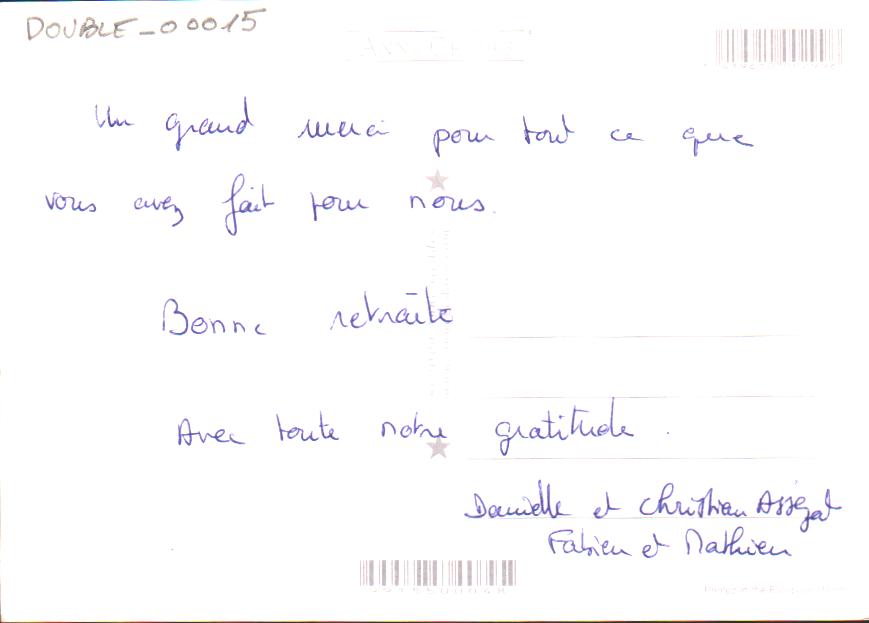 DOUBLE_00015
Un grand merci pour tout ce que
vous avez fait pour nous.
Bonne retraite
Avec toute notre gratitude.
Danielle et Christian Asségat
Fabien et Mathieu